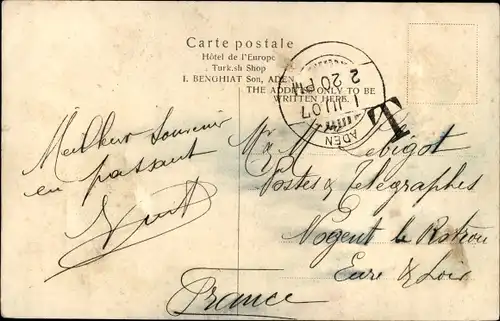 Carte postale
Hôtel de l'Europe
Turk.sh Shop
I. BENGHIAT Son, ADEN
THE ADDRESS ONLY TO BE
WRITTEN HERE.
ADEN
1 JU 07
2 20 PM
T
Meilleur Souvenir
en passant
Mr Lebigot
Postes & Télégraphes
Nogent le Rotrou
Eure & Loir
France